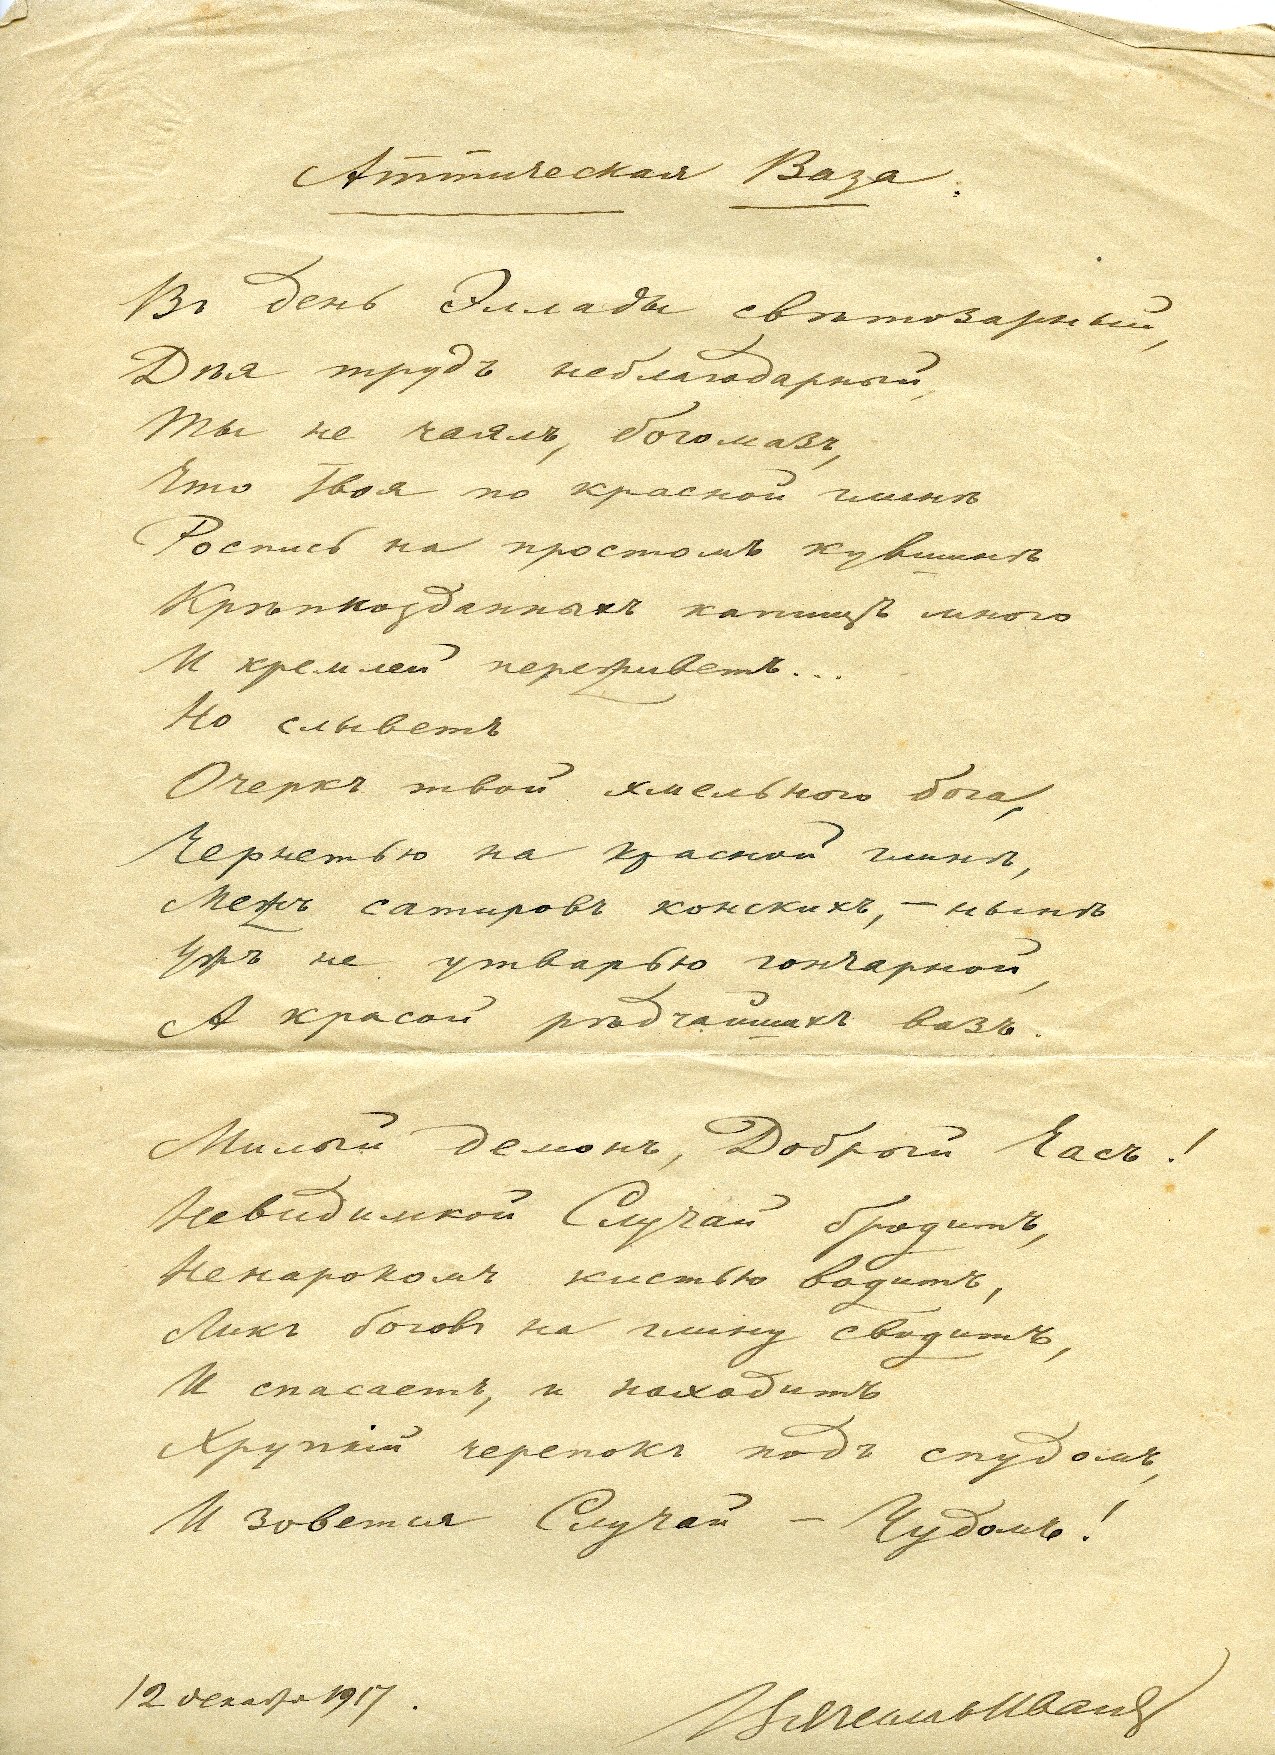 Аттическая Ваза.
Въ день Эллады свѣтозарный,
Дѣя трудъ неблагодарный,
Ты не чаялъ, богомазъ,
Что твоя по красной глинѣ
Роспись на простомъ кувшинѣ
Крѣпкозданныхъ капищъ много
И кремлей переживетъ...
Но слыветъ
Очеркъ твой хмельного бога,
Чернетью на красной глинѣ,
Межъ сатировъ конскихъ, – нынѣ
Ужъ не утварью гончарной,
А красой рѣдчайшихъ вазъ.
Милый демонъ, Добрый Часъ!
Невидимкой Случай бродитъ,
Ненарокомъ кистью водитъ,
Ликъ боговъ на глину сводитъ,
И спасаетъ, и находитъ
Хрупкій черепокъ подъ спудомъ,
И зовется Случай – Чудомъ!
12 декабря 1917.
Вячеславъ Ивановъ